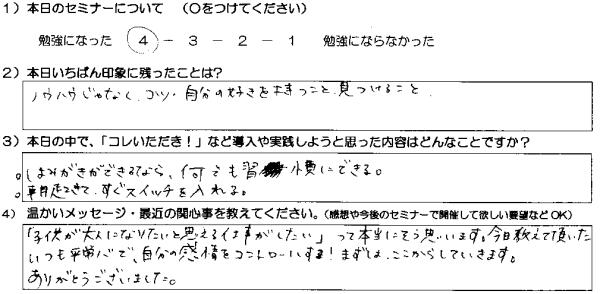 1）本日のセミナーについて （○をつけてください）
勉強になった 4 － 3 － 2 － 1 勉強にならなかった
2）本日いちばん印象に残ったことは？
ノウハウじゃなく、コツ・自分の好きを持つこと、見つけること。
3）本日の中で、「コレいただき！」など導入や実践しようと思った内容はどんなことですか？
。はみがきができるなら、何でも習慣にできる。
。朝起きて、すぐスイッチを入れる。
4） 温かいメッセージ・最近の関心事を教えてください。（感想や今後のセミナーで開催して欲しい要望などOK）
「子供が大人になりたいと思える仕事がしたい」って本当にそう思います。今日教えて頂いた
いつも平常心で、自分の感情をコントロールする！まずは、ここからしていきます。
ありがとうございました。